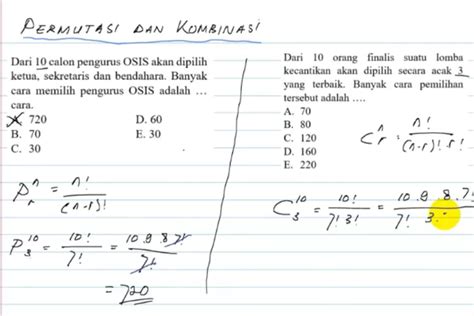 PERMUTASI DAN KOMBINASI
Dari 10 calon pengurus OSIS akan dipilih
ketua, sekretaris dan bendahara. Banyak
cara memilih pengurus OSIS adalah …
cara.
A. 720
B. 70
C. 30
D. 60
E. 30
P n r = n! / (n-r)!
P 10 3 = 10! / 7! = 10.9 8 7! / 7!
= 720
Dari 10 orang finalis suatu lomba
kecantikan akan dipilih secara acak 3
yang terbaik. Banyak cara pemilihan
tersebut adalah ….
A. 70
B. 80
C. 120
D. 160
E. 220
C n r = n! / (n-r)! r!
C 10 3 = 10! / 7! 3! = 10.9 8.7! / 7! 3.